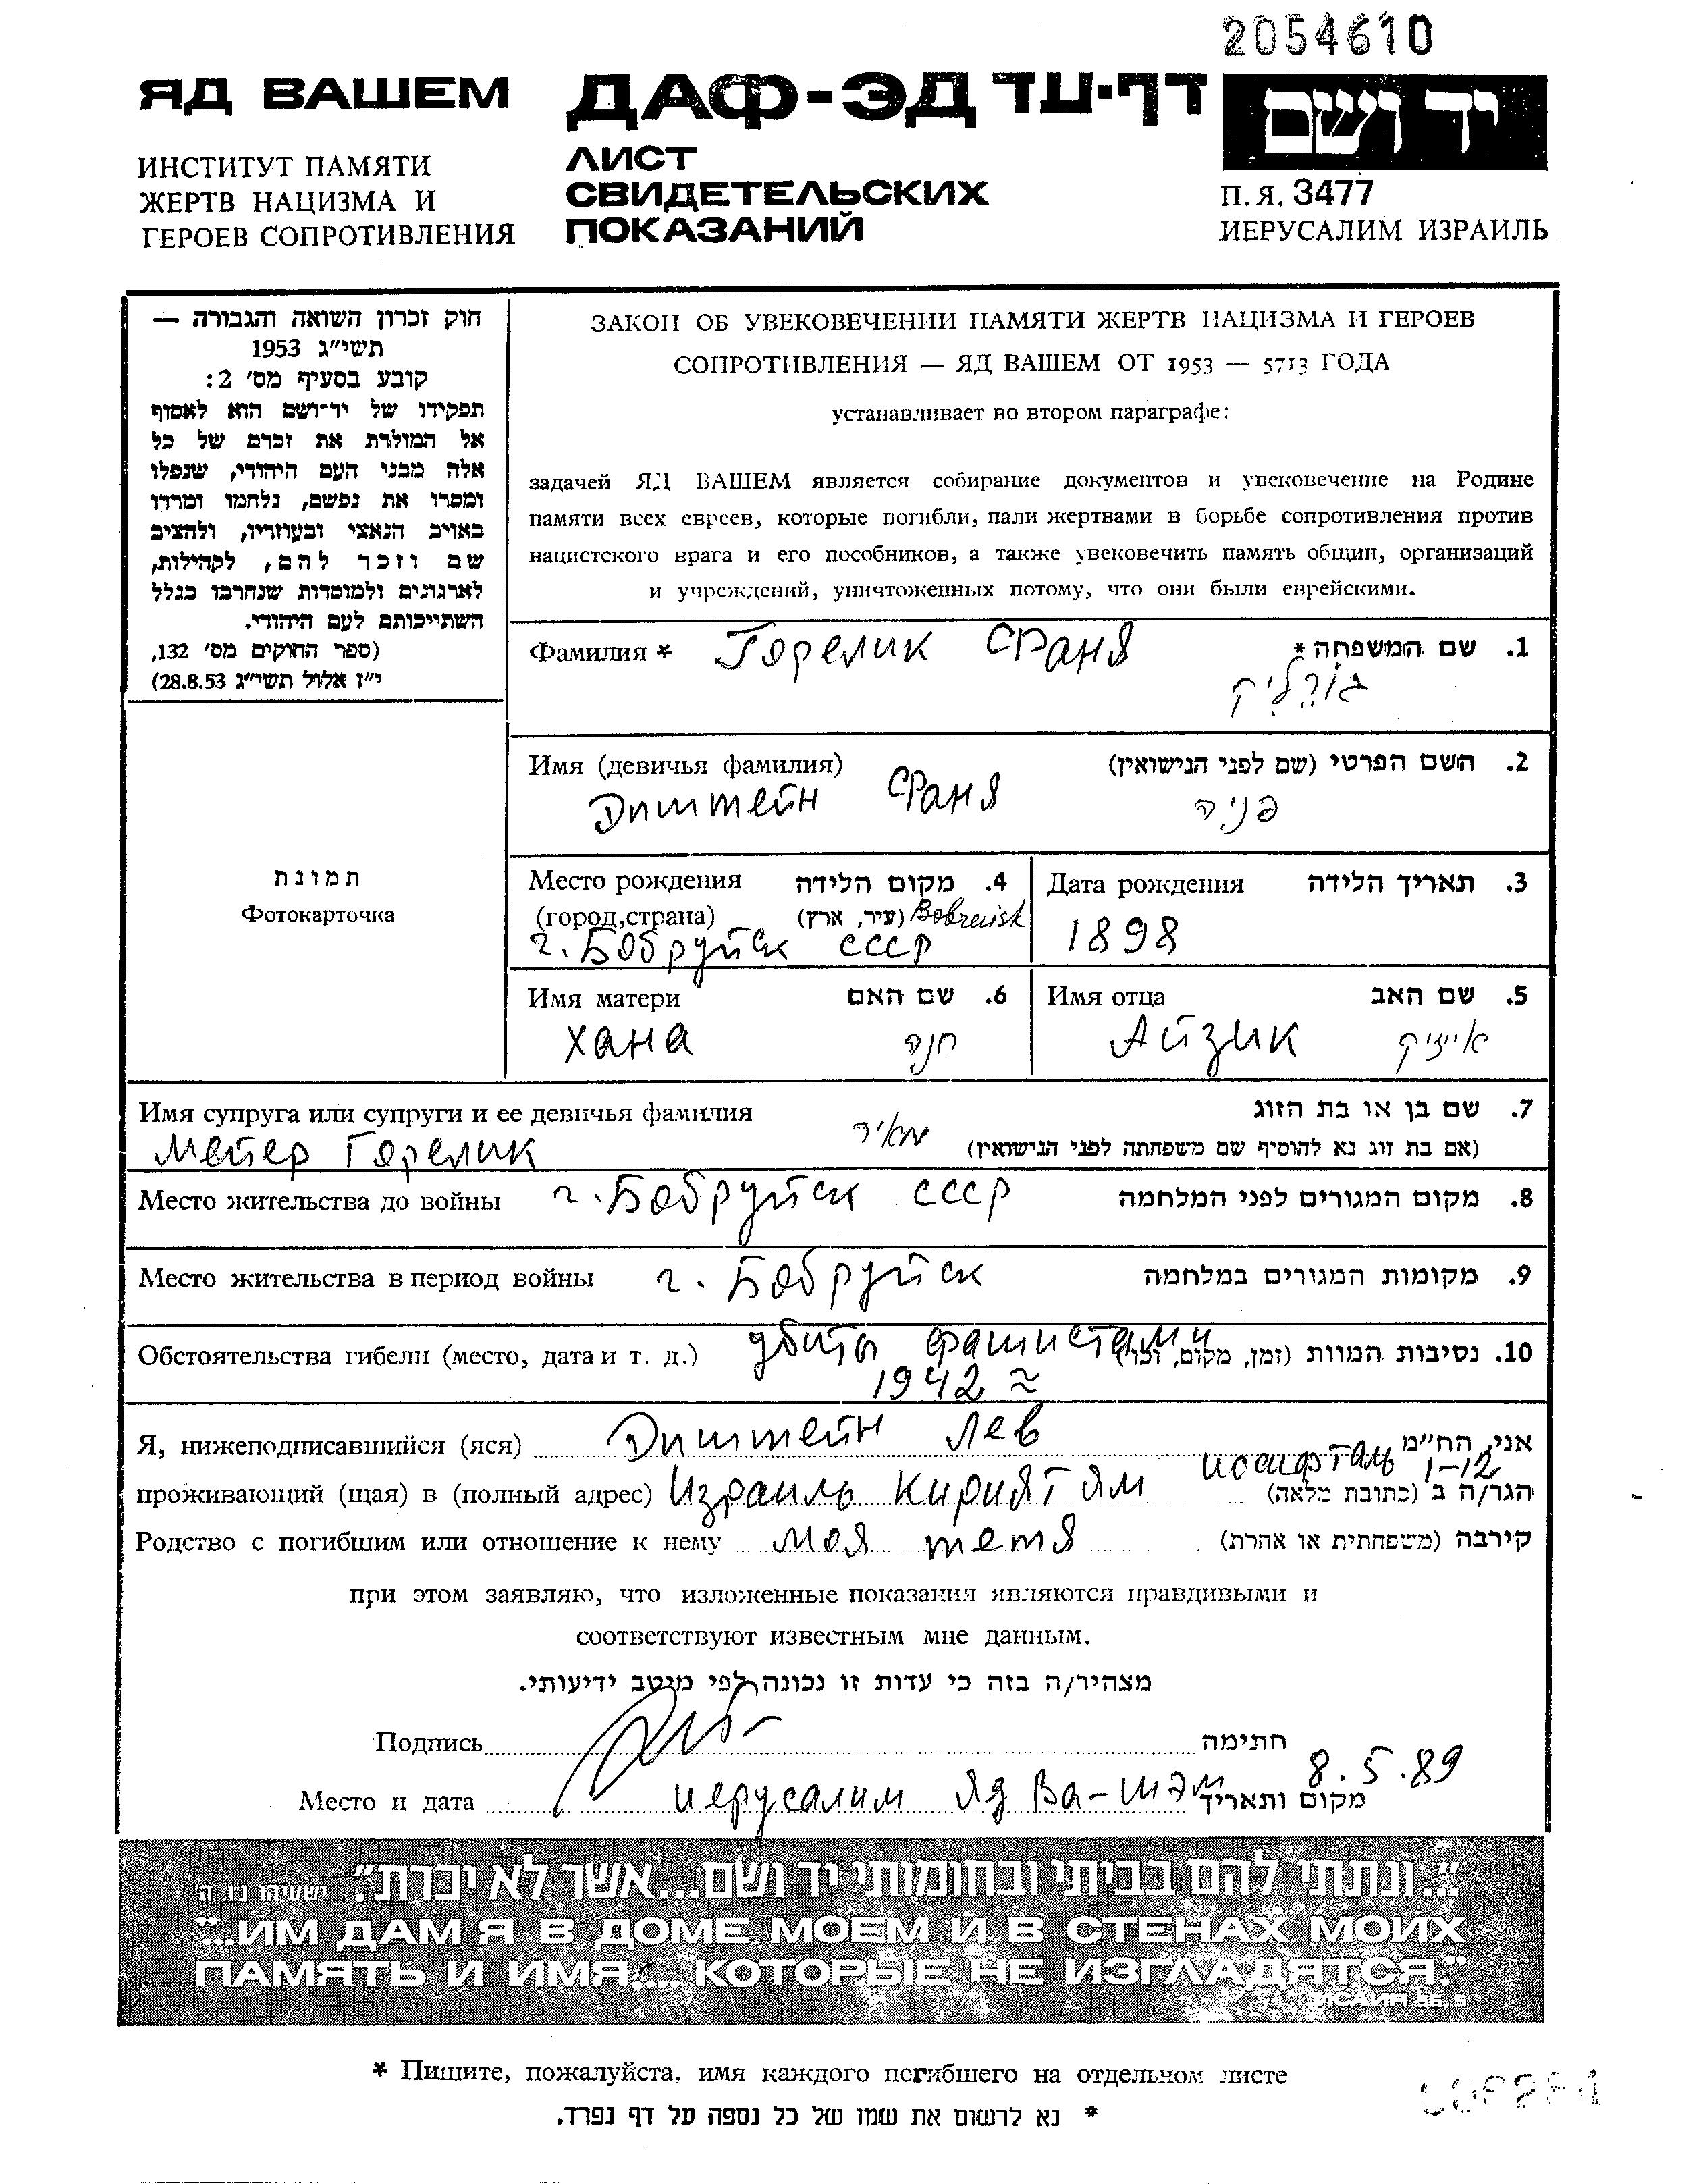 2054610
ЯД ВАШЕМ
ДАФ-ЭД דף-עד
יד ושם
ИНСТИТУТ ПАМЯТИ
ЖЕРТВ НАЦИЗМА И
ГЕРОЕВ СОПРОТИВЛЕНИЯ
ЛИСТ
СВИДЕТЕЛЬСКИХ
ПОКАЗАНИЙ
П.Я. 3477
ИЕРУСАЛИМ ИЗРАИЛЬ
חוק זכרון השואה והגבורה —
תשי״ג 1953
קובע בסעיף מס׳ 2:
תפקידו של יד־ושם הוא לאסוף
אל המולדת את זכרם של כל
אלה מבני העם היהודי, שנפלו
ומסרו את נפשם, נלחמו ומרדו
באויב הנאצי ובעוזריו, ולהציב
שם וזכר להם, לקהילות,
לארגונים ולמוסדות שנחרבו בגלל
השתייכותם לעם היהודי.
(ספר החוקים מס׳ 132,
י״ז אלול תשי״ג 28.8.53)
ЗАКОН ОБ УВЕКОВЕЧЕНИИ ПАМЯТИ ЖЕРТВ НАЦИЗМА И ГЕРОЕВ
СОПРОТИВЛЕНИЯ — ЯД ВАШЕМ ОТ 1953 — 5713 ГОДА
устанавливает во втором параграфе:
задачей ЯД ВАШЕМ является собирание документов и увековечение на Родине
памяти всех евреев, которые погибли, пали жертвами в борьбе сопротивления против
нацистского врага и его пособников, а также увековечить память общин, организаций
и учреждений, уничтоженных потому, что они были еврейскими.
Фамилия * Горелик Фаня 1. שם המשפחה *
גורליק
Имя (девичья фамилия) 2. השם הפרטי (שם לפני הנישואין)
Эпштейн Фаня פניה
תמונת
Фотокарточка
Место рождения 4. מקום הלידה
(город,страна) (עיר, ארץ) Bobruisk
г. Бобруйск СССР
Дата рождения 3. תאריך הלידה
1898
Имя матери 6. שם האם
Хана חנה
Имя отца 5. שם האב
Айзик אייזיק
Имя супруга или супруги и ее девичья фамилия 7. שם בן או בת הזוג
Мейер Горелик מאיר (אם בת זוג נא להוסיף שם משפחתה לפני הנישואין)
Место жительства до войны г. Бобруйск СССР 8. מקום המגורים לפני המלחמה
Место жительства в период войны г. Бобруйск 9. מקומות המגורים במלחמה
Обстоятельства гибели (место, дата и т. д.) убиты фашистами 10. נסיבות המוות (זמן, מקום, וכו׳)
1942 ≈
Я, нижеподписавшийся (яся) Эпштейн Лев אני, הח״מ
проживающий (щая) в (полный адрес) Израиль Кирият Ям Иосифталь 1-12 הגר/ה ב (כתובת מלאה)
Родство с погибшим или отношение к нему моя тетя קירבה (משפחתית או אחרת)
при этом заявляю, что изложенные показания являются правдивыми и
соответствуют известным мне данным.
מצהיר/ה בזה כי עדות זו נכונה לפי מיטב ידיעותי.
Подпись חתימה
Место и дата Иерусалим Яд Ва-шэм 8.5.89 מקום ותאריך
״...ונתתי להם בביתי ובחומותי יד ושם...אשר לא יכרת״. ישעיהו נו, ה׳
"...ИМ ДАМ Я В ДОМЕ МОЕМ И В СТЕНАХ МОИХ
ПАМЯТЬ И ИМЯ... КОТОРЫЕ НЕ ИЗГЛАДЯТСЯ."
ИСАИЯ 56, 5
* Пишите, пожалуйста, имя каждого погибшего на отдельном листе
* נא לרשום את שמו של כל נספה על דף נפרד.